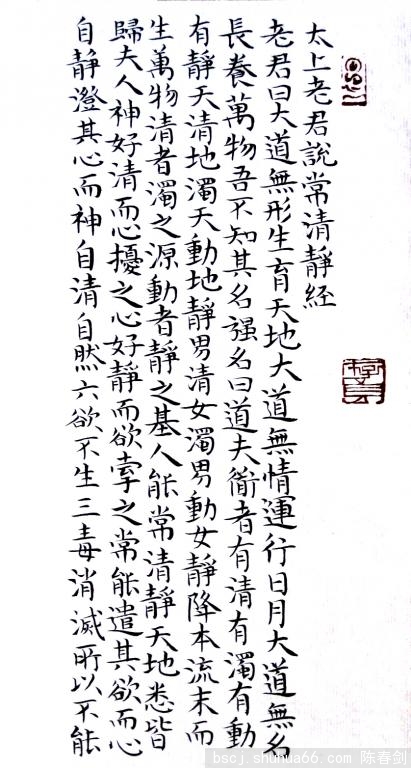 太上老君說常清靜經
老君曰大道無形生育天地大道無情運行日月大道無名
長養萬物吾不知其名强名曰道夫衜者有清有濁有動
有靜天清地濁天動地靜男清女濁男動女靜降本流末而
生萬物清者濁之源動者靜之基人能常清靜天地悉皆
歸夫人神好清而心擾之心好靜而欲牽之常能遣其欲而心
自靜澄其心而神自清自然六欲不生三毒消滅所以不能
bscj.shuhua66.com 陈春剑